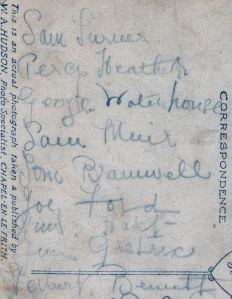 Sam Turner
Percy Heathcote
George Waterhouse
Sam Muir
Tom Bramwell
Joe Ford
Bennett
CORRESPONDENCE
This is an actual photograph taken & published by
W. A. HUDSON, Photo Specialist, CHAPEL-EN-LE-FRITH.